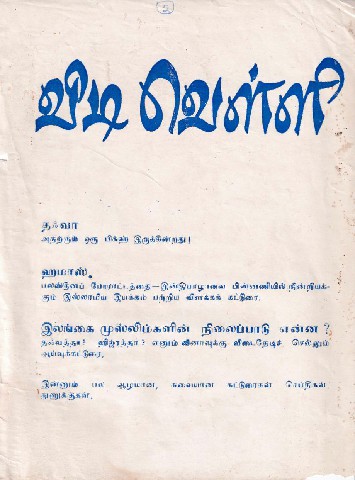 விடி வெள்ளி
தஃவா
அதற்கும் ஒரு பிக்ஹ் இருக்கின்றது!
ஹமாஸ்
பலஸ்தீனப் போராட்டத்தை—இன்திபாழாவை பின்னணியில் நின்றியக்
கும் இஸ்லாமிய இயக்கம் பற்றிய விளக்கக் கட்டுரை.
இலங்கை முஸ்லிம்களின் நிலைப்பாடு என்ன?
தஃவத்தா? ஹிஜ்ரத்தா? எனும் வினாவுக்கு விடைதேடிச் செல்லும்
ஆய்வுக்கட்டுரை.
இன்னும் பல ஆழமான, சுவையான கட்டுரைகள் செய்திகள்
துணுக்குகள்.